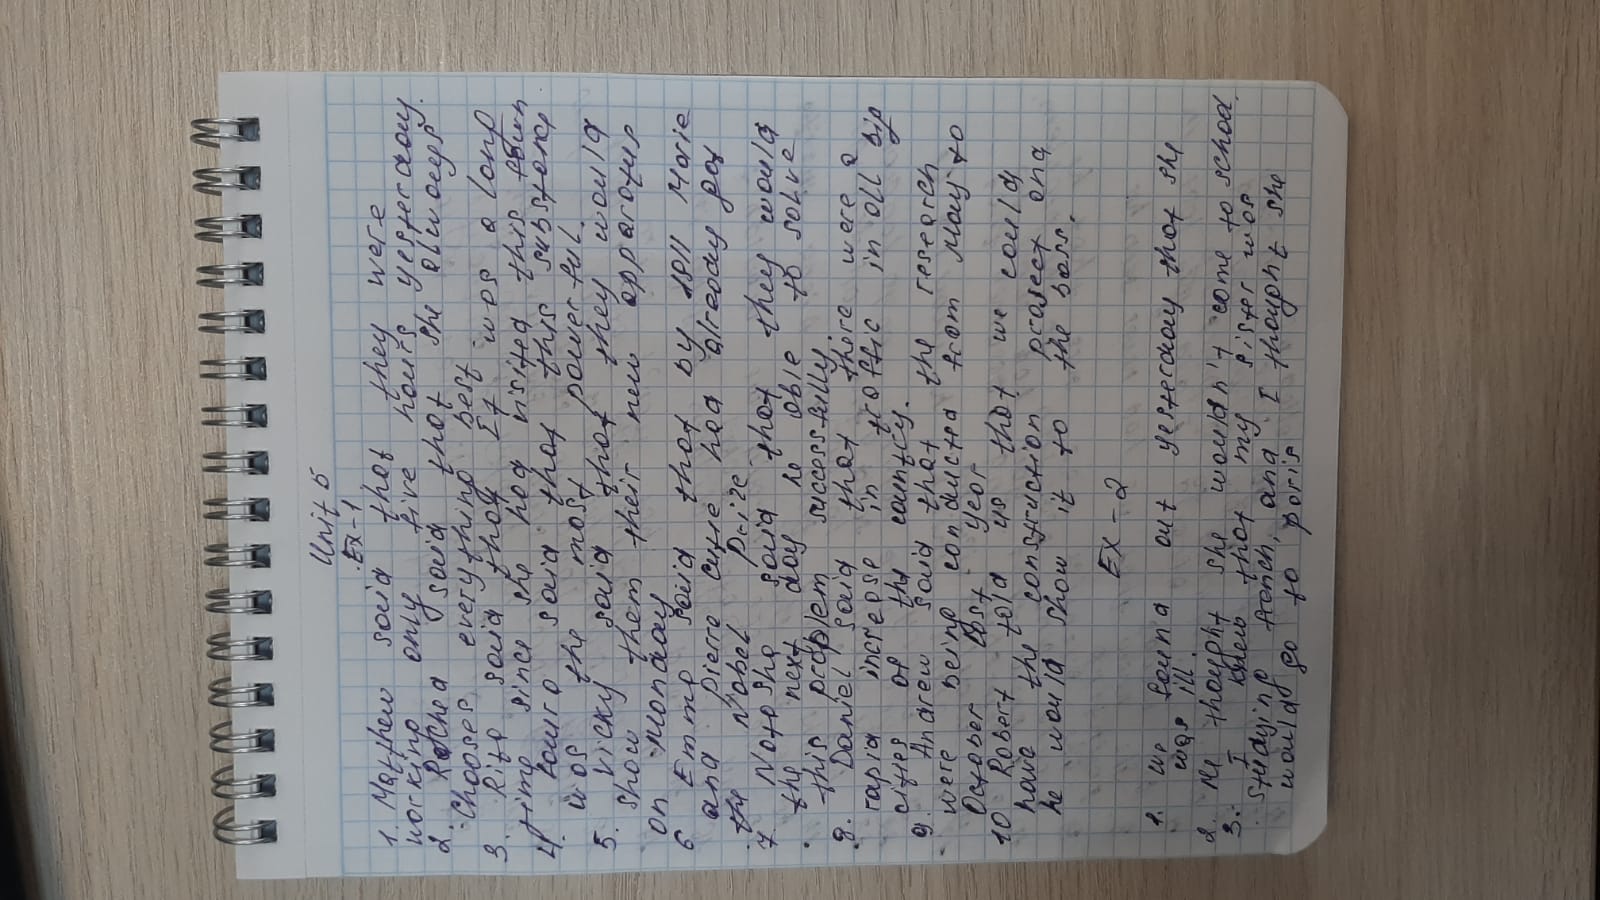 Unit 5
Ex-1
1. Matthew said that they were
working only five hours yesterday.
2. said that she always
chooses everything best
3. Rita said that It was a long
time since she had visited this town
4. Laura said that this substance
was the most powerful.
5. Vicky said that they would
show them their new apparatus
on Monday
6 Emma said that by 1911 Marie
and Pierre had already got
the Nobel Prize
7 Natasha said that they would
the next day be able to solve
this problem successfully
8. Daniel said that there were a
rapid increase in traffic in all big
cities of the country.
9. Andrew said that the research
were being conducted from May to
October last year
10 Robert told us that we could
have the construction prosect and
he would show it to the boss.
Ex-2
1. We found out yesterday that she
was ill.
2. He thought she wouldn't come to school.
3. I knew that my sister was
studying French, and I thought she
would go to paris